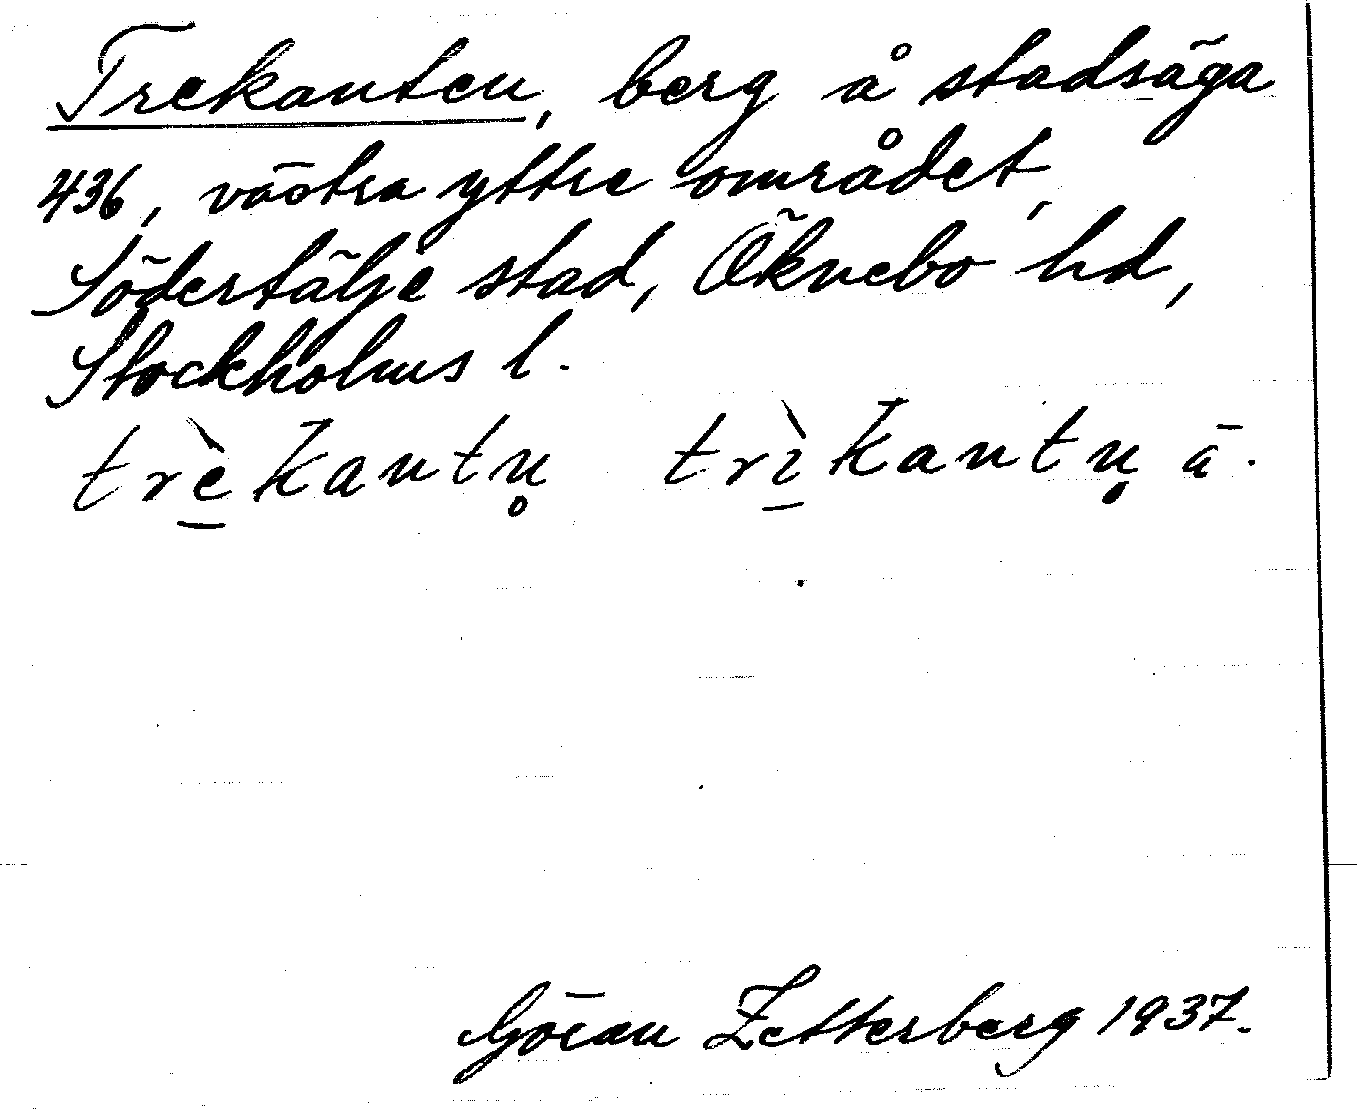 Trekanten, berg å stadsäga
436, västra yttre området,
Södertälje stad, Öknebo hd,
Stockholms l.
trè̲kantn̥ trì̲kantn̥ ā.
Göran Zetterberg 1937.